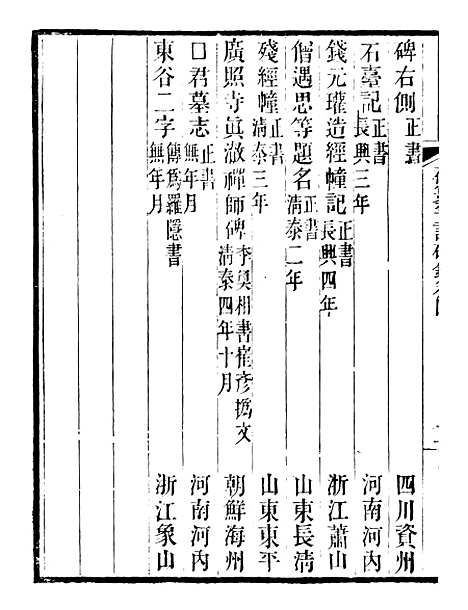 碑右側 正書 四川資州
石臺記 正書 長興三年 河南河內
錢元瓘造經幢記 正書 長興四年 浙江蕭山
僧遇思等題名 正書 清泰二年 山東長清
殘經幢 正書 清泰三年 山東東平
廣照寺眞澈禪師碑 李奐相書崔彥撝文 清泰四年十月 朝鮮海州
口君墓志 正書 無年月 河南河內
東谷二字 傳爲羅隱書 無年月 浙江象山